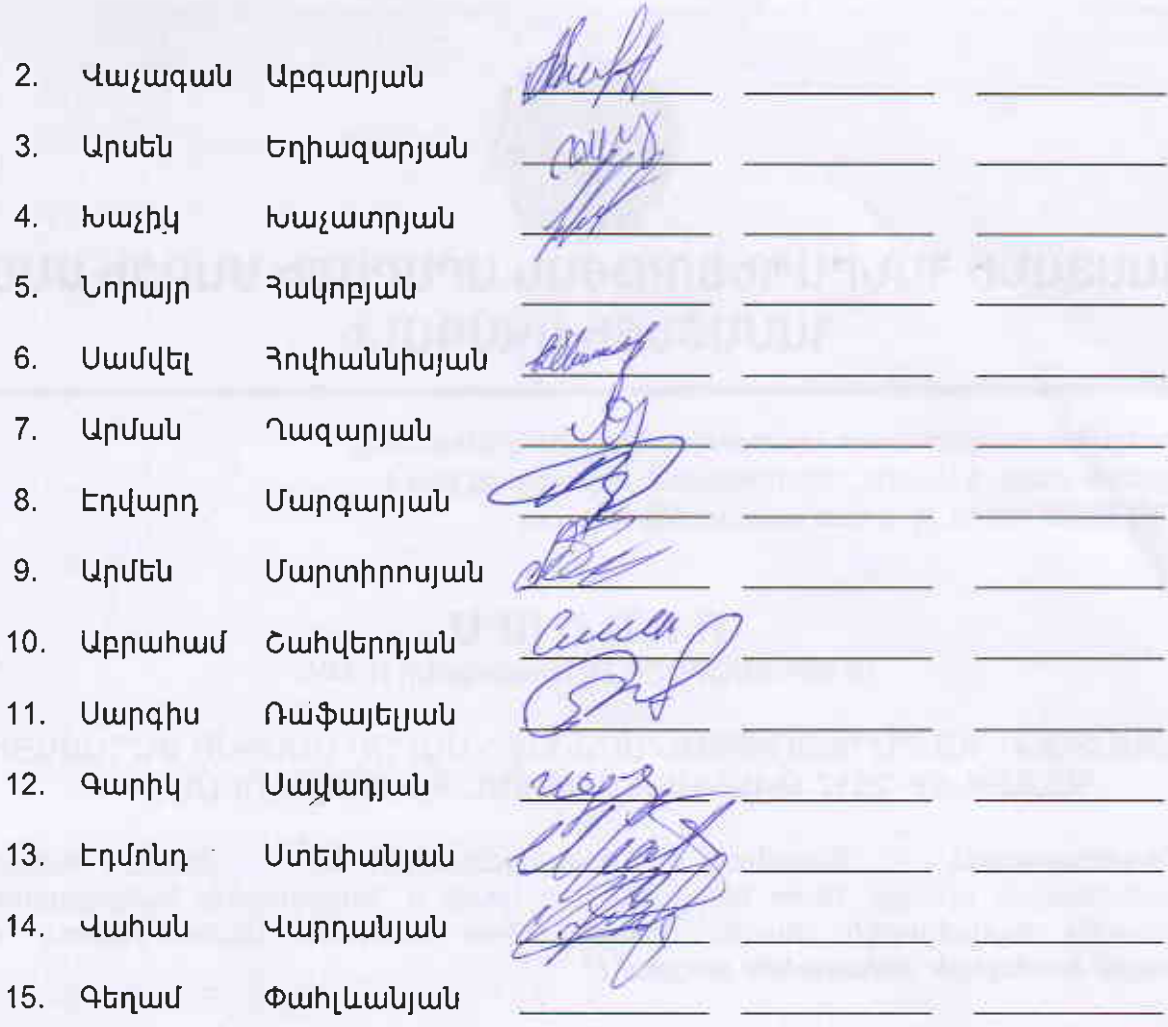 2. Վաչագան Աբգարյան
3. Արսեն Եղիազարյան
4. Խաչիկ Խաչատրյան
5. Նորայր Հակոբյան
6. Սամվել Հովհաննիսյան
7. Արման Ղազարյան
8. Էդվարդ Մարգարյան
9. Արմեն Մարտիրոսյան
10. Աբրահամ Շահվերդյան
11. Սարգիս Ռաֆայելյան
12. Գարիկ Սայադյան
13. Էդմոնդ Ստեփանյան
14. Վահան Վարդանյան
15. Գեղամ Փահլևանյան